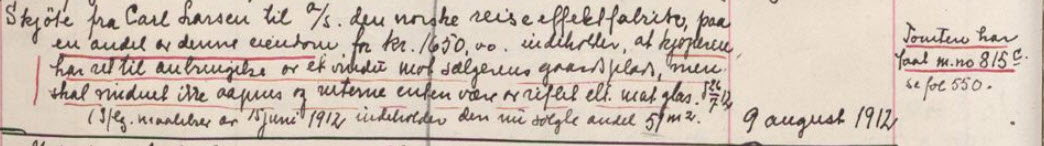 Skjöte fra Carl Larsen til a/s. den norske reiseeffektfabrik, paa
en andel av denne eiendom for kr. 1650,00. indeholder, at kjøperen
har ret til anbringelse av et vindu mot sælgerens gaardsplads, men
skal vinduet ikke aapnes og ruterne enten være av riflet ell. mat glas. d 26/7 12
(Ifølg. maalebrev av 15 juni 1912 indeholder den nu solgte andel 51 m2.
9 august 1912
Tomten har
faat m.no 815 c.
se fol 550.